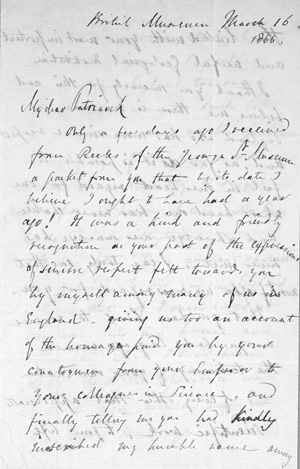 British Museum March 16
1866.
My dear Patriarch
Only a few days ago I received
from Reeks of the Jermyn St. Museum
a packet from you that by its date I
believe I ought to have had a year
ago! It was a kind and friendly
recognition on your part of the expressions
of sincere respect felt towards you
by myself among many of us in
England - giving us too an account
of the homage paid you by your
countrymen from your Emperor to
your colleagues in Science, and
finally telling me you had kindly
inscribed my humble name among